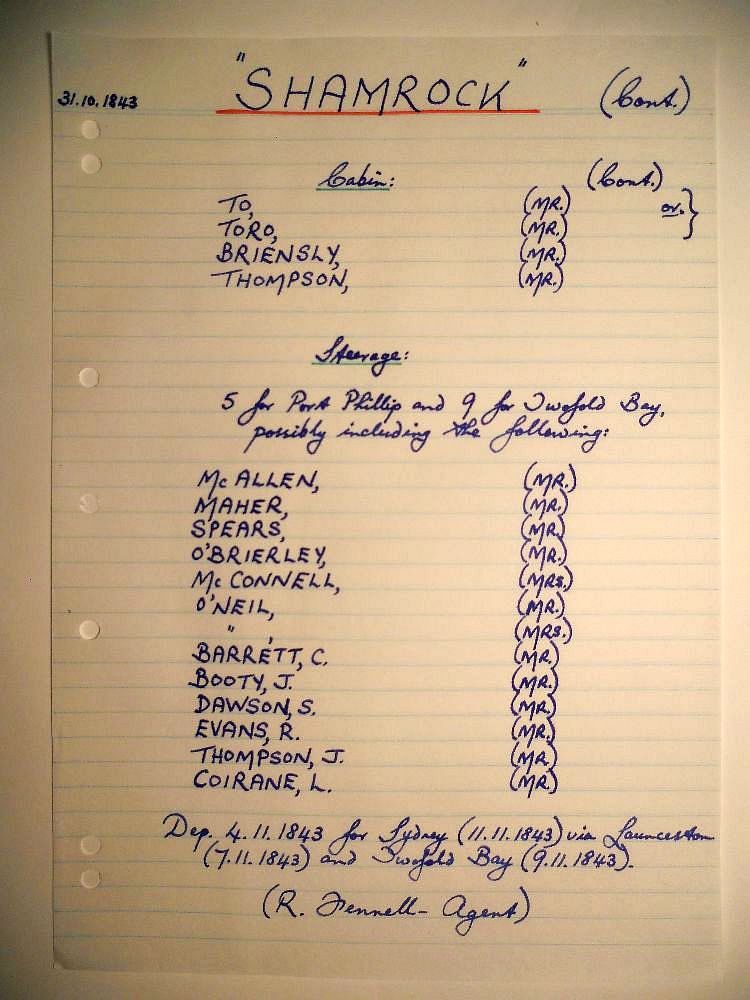 31.10.1843 "SHAMROCK" (Cont.)
Cabin: (Cont.)
TO, (MR.) or. }
TORO, (MR.)
BRIENSLY, (MR.)
THOMPSON, (MR.)
Steerage:
5 for Port Phillip and 9 for Twofold Bay,
possibly including the following:
McALLEN, (MR.)
MAHER, (MR.)
SPEARS, (MR.)
O'BRIERLEY, (MR.)
McCONNELL, (MRS.)
O'NEIL, (MR.)
" , (MRS.)
BARRETT, C. (MR.)
BOOTY, J. (MR.)
DAWSON, S. (MR.)
EVANS, R. (MR.)
THOMPSON, J. (MR.)
COIRANE, L. (MR.)
Dep. 4.11.1843 for Sydney (11.11.1843) via Launceston
(7.11.1843) and Twofold Bay (9.11.1843).
(R. Fennell - Agent)